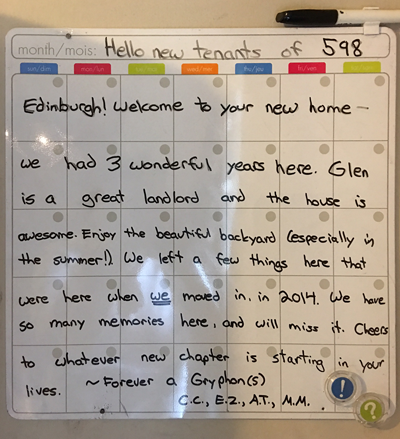 month/mois: Hello new tenants of 598
su/dim mon/lun tue/mar wed/mer thu/jeu fri/ven sat/sam
Edinburgh! Welcome to your new home —
we had 3 wonderful years here. Glen
is a great landlord and the house is
awesome. Enjoy the beautiful backyard (especially in
the summer!). We left a few things here that
were here when we moved in, in 2014. We have
so many memories here, and will miss it. Cheers
to whatever new chapter is starting in your
lives. ~ Forever a Gryphon(s)
C.C., E.Z., A.T., M.M.
!
?